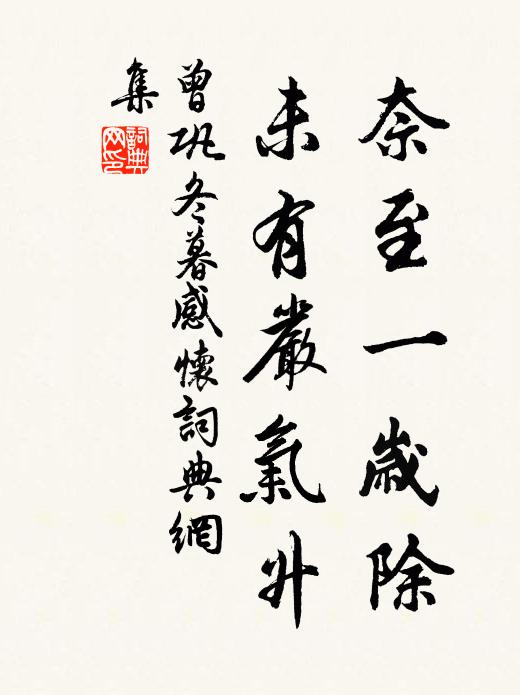 奈至一歲除
未有嚴氣升
曾巩冬暮感懷詞典網
集
詞典網印